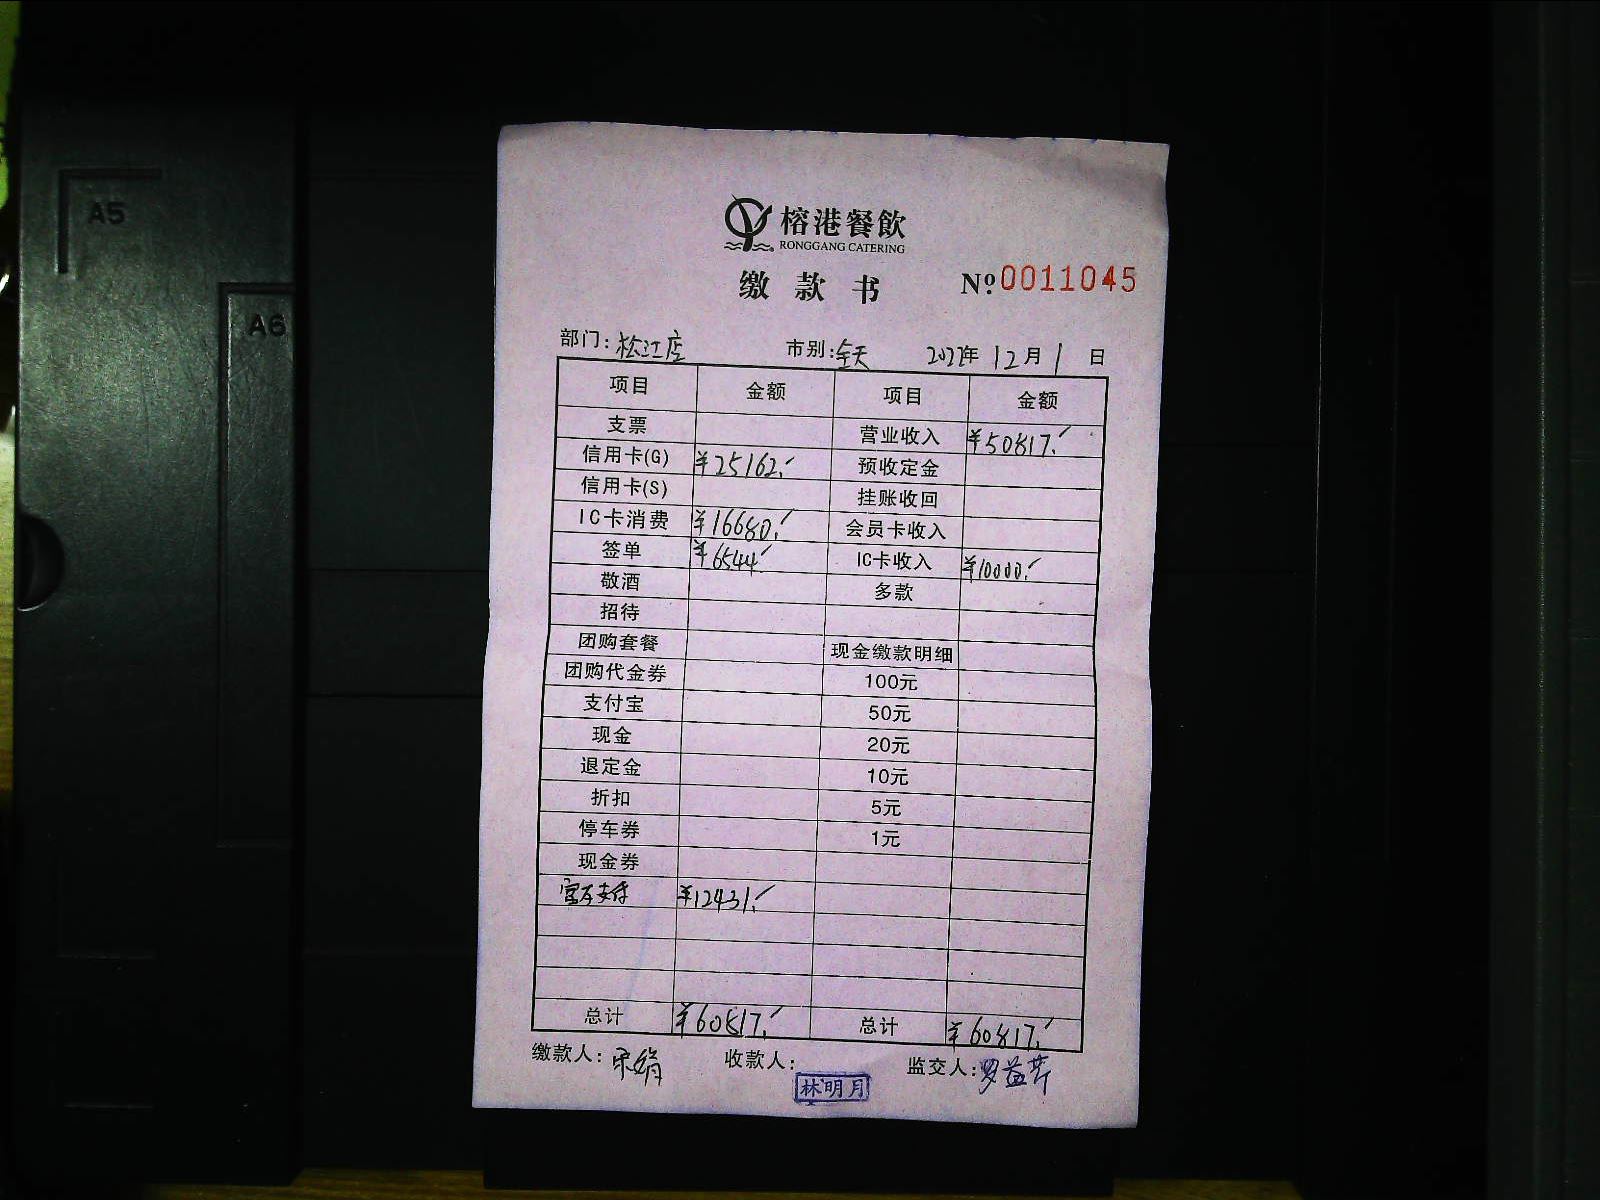 A5
A6
榕港餐飲
RONGGANG CATERING
缴款书 № 0011045
部门: 松江店 市别: 全天 2022年 12月 1日
项目 金额 项目 金额
支票 营业收入 ¥50817.
信用卡(G) ¥25162. 预收定金
信用卡(S) 挂账收回
IC卡消费 ¥16680. 会员卡收入
签单 ¥6544 IC卡收入 ¥10000.
敬酒 多款
招待
团购套餐 现金缴款明细
团购代金券 100元
支付宝 50元
现金 20元
退定金 10元
折扣 5元
停车券 1元
现金券
支付 ¥12431.
总计 ¥60817. 总计 ¥60817.
缴款人: 宋娟 收款人: 林明月 监交人: 罗益芹